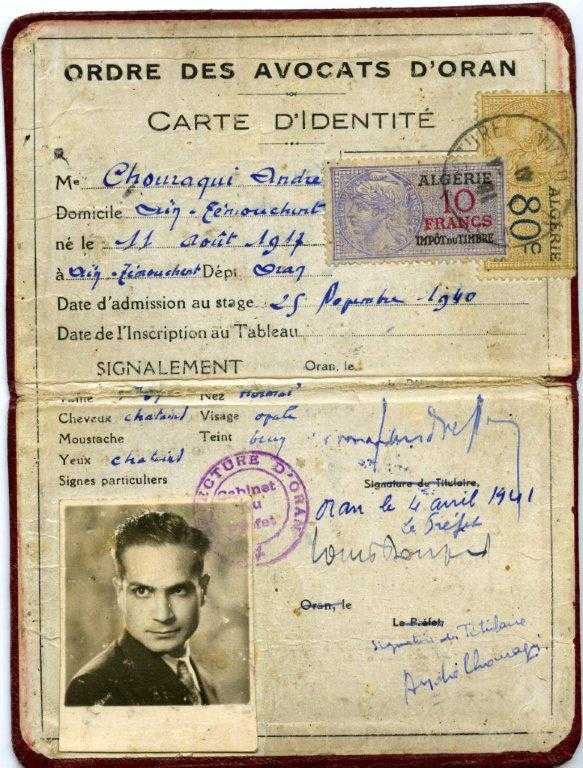 ORDRE DES AVOCATS D'ORAN
CARTE D'IDENTITÉ
Me Chouraqui André
Domicile Aïn-Témouchent
né le 11 Août 1917
à Aïn-Témouchent Dépt Oran
Date d'admission au stage 25 1940
Date de l'Inscription au Tableau
SIGNALEMENT Oran, le
Taille Nez normal
Cheveux chatains Visage ovale
Moustache Teint
Yeux chatains
Signes particuliers
Signature du Titulaire,
Oran le 4 avril 1941
Le Préfet
Oran, le
Le Préfet,
Signature du Titulaire
André Chouraqui
ALGÉRIE
10
FRANCS
IMPÔT DU TIMBRE
ALGÉRIE
80c
PRÉFECTURE D'ORAN
Cabinet
du
Préfet